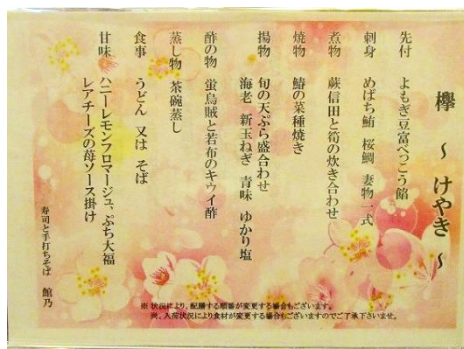 欅 ～ けやき ～
先付 よもぎ豆富べっこう餡
刺身 めばち鮪 桜鯛 妻物一式
煮物 蕨信田と筍の炊き合わせ
焼物 鰆の菜種焼き
揚物 旬の天ぷら盛合わせ
海老 新玉ねぎ 青味 ゆかり塩
酢の物 蛍烏賊と若布のキウイ酢
蒸し物 茶碗蒸し
食事 うどん 又は そば
甘味 ハニーレモンフロマージュ、ぷち大福
レアチーズの苺ソース掛け
寿司と手打ちそば 館乃
※ 状況により、配膳する順番が変更する場合もございます。
尚、入荷状況により食材が変更する場合もございますのでご了承下さいませ。